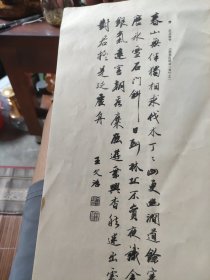 春山無伴獨相求伐木丁〻山更幽澗道餘寒
歷冰雪石門斜日到林丘不貪夜識金
銀氣遠害朝看麋鹿遊乘興杳然迷出處
對君疑是泛虛舟
王文治